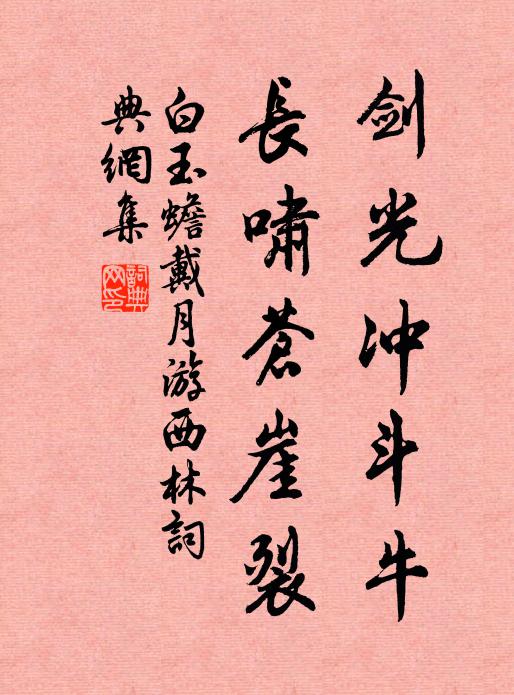 剑光冲斗牛
長嘯蒼崖裂
白玉蟾戴月游西林詞
典網集
詞典網印